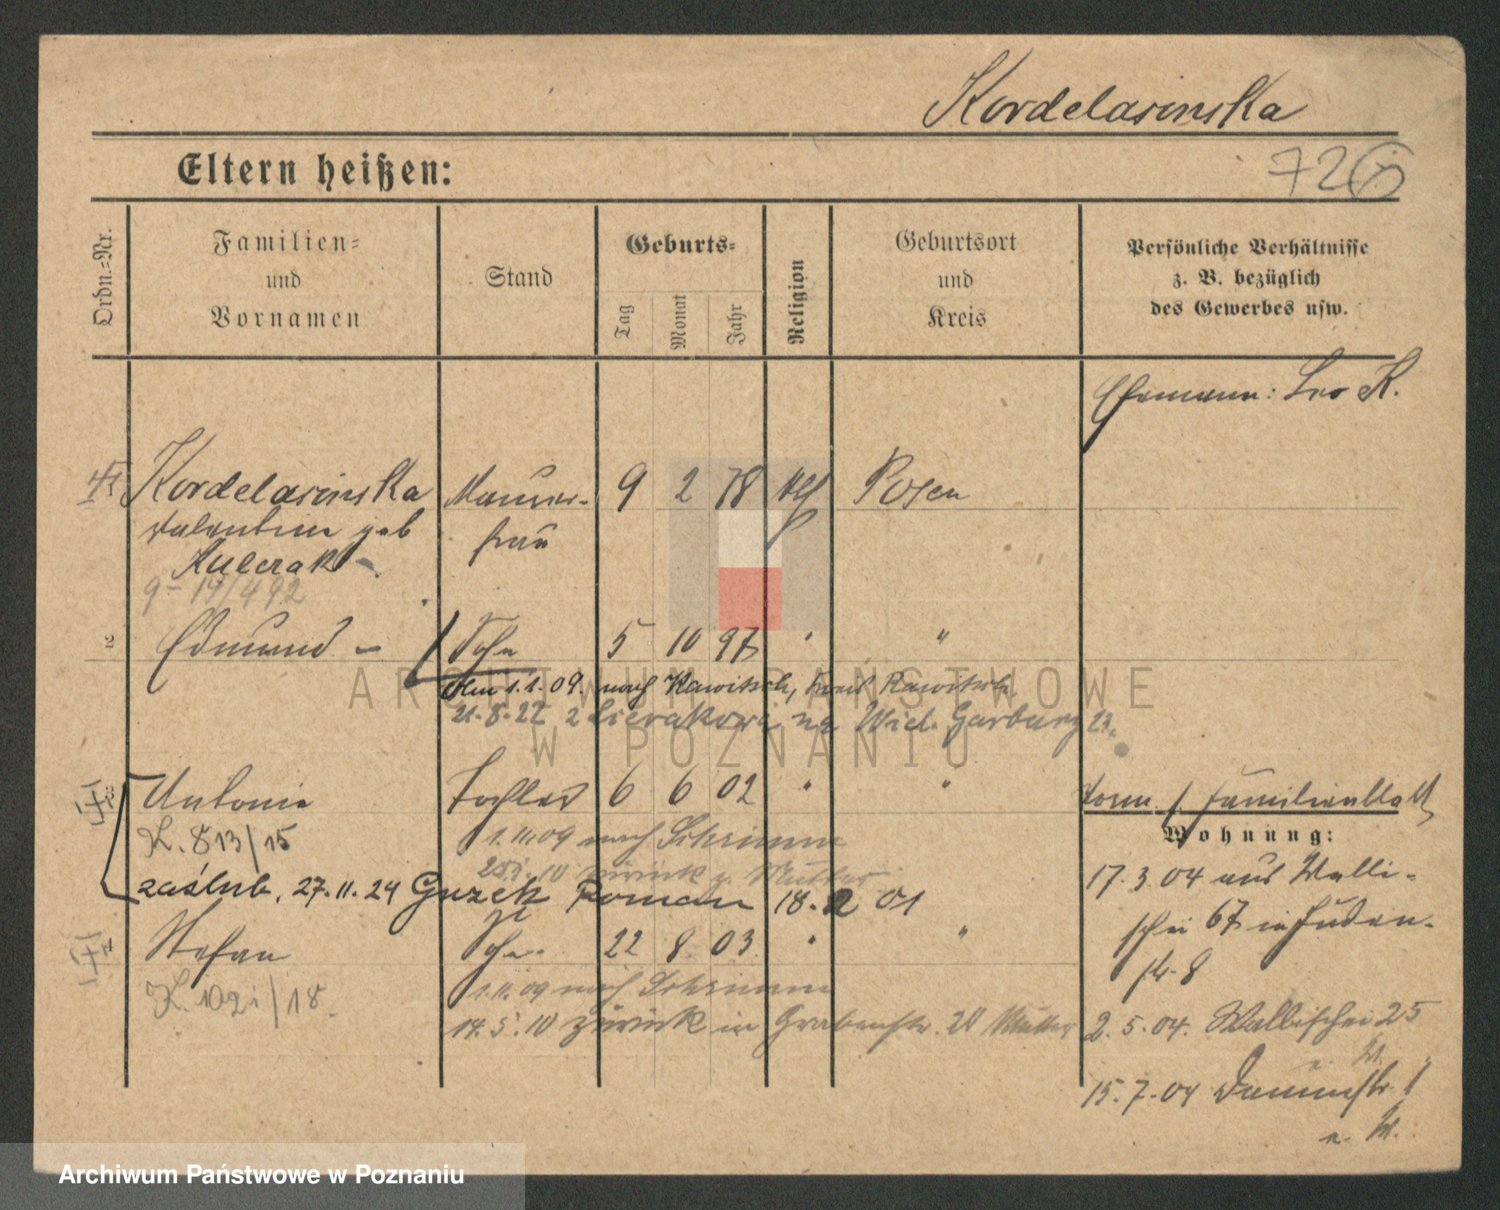 Kordelasinska
Eltern heißen:
72
Ordn.-Nr.
Familien-
und
Vornamen
Stand
Geburts-
Tag
Monat
Jahr
Religion
Geburtsort
und
Kreis
Persönliche Verhältnisse
z. B. bezüglich
des Gewerbes usw.
Ehemann: Leo K.
1 Kordelasinska Maurer- 9 2 78 kth Posen
Valentine geb frau
Kulcrak
9- 14/492
2 Edmund - Sohn 5 10 97 " "
Am 1.1.09. nach Rawitsch, Kreis Rawitsch.
21.8.22 z Sierakowa na Wiel. Garbary 23.
3 Antonie Tochter 6 6 02 " "
K. 813/15 1.11.09 nach Schrimm
10 zurück z. Mutter
zaślub. 27.11.24 Guzek Roman 18.2 01
4 Stefan Sohn 22 8 03 " "
1.11.09 nach Schrimm
14.5.10 zurück in Grabenstr. 24 Mutter
Vorm. s. Familienblatt
Wohnung:
17.3.04 aus Walli-
schei 67 in Juden-
str. 8
2.5.04. Wallischei 25
15.7.04 Dammstr. 1
ARCHIWUM PAŃSTWOWE
W POZNANIU
Archiwum Państwowe w Poznaniu